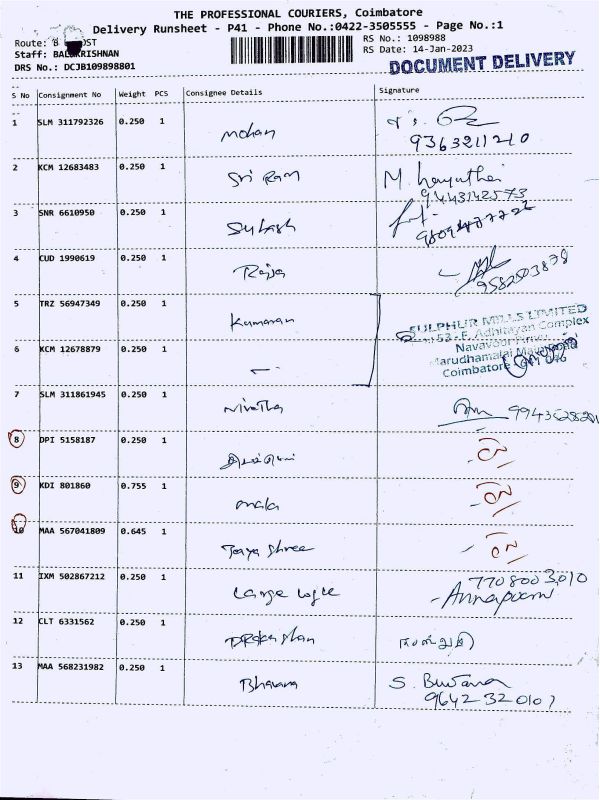 THE PROFESSIONAL COURIERS, Coimbatore
Delivery Runsheet - P41 - Phone No.:0422-3505555 - Page No.:1
Route: 8 OST
RS No.: 1098988
Staff: BAL KRISHNAN
RS Date: 14-Jan-2023
DRS No.: DCJB109898801
DOCUMENT DELIVERY
S No Consignment No Weight PCS Consignee Details Signature
1 SLM 311792326 0.250 1 Mohan
9363211210
2 KCM 12683483 0.250 1 Sri Ram M.
9443142573
3 SNR 6610950 0.250 1
4 CUD 1990619 0.250 1 Raja
9582503878
5 TRZ 56947349 0.250 1 Kumaran
SULPHUR MILLS LIMITED
53-F, Adhitayan Complex
Navavoor Pirivu
6 KCM 12678879 0.250 1
Marudhamalai Main Road
Coimbatore - 641 046
7 SLM 311861945 0.250 1 Nivetha
8 DPI 5158187 0.250 1
9 KDI 801860 0.755 1 mala
10 MAA 567041809 0.645 1 Jaya Shree
11 IXM 502867212 0.250 1 Large Logic 7708003010
12 CLT 6331562 0.250 1
13 MAA 568231982 0.250 1 Bhavana S.
9642320107